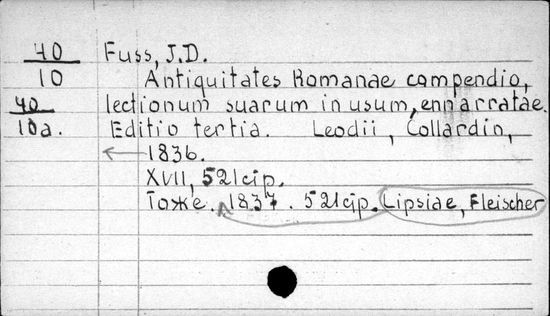 40 Fuss, J.D.
10 Antiquitates Romanae compendio,
40 lectionum suarum in usum, ennarratae.
10a. Editio tertia. Leodii, Collardin,
1836.
XVII, 521 стр.
Тоже. 1837. 521 стр. Lipsiae, Fleischer